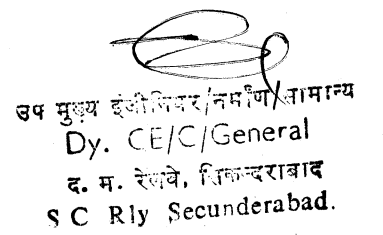 उप मुख्य इंजीनियर/निर्माण/सामान्य
Dy. CE/C/General
द. म. रेलवे, सिकन्दराबाद
S C Rly Secunderabad.